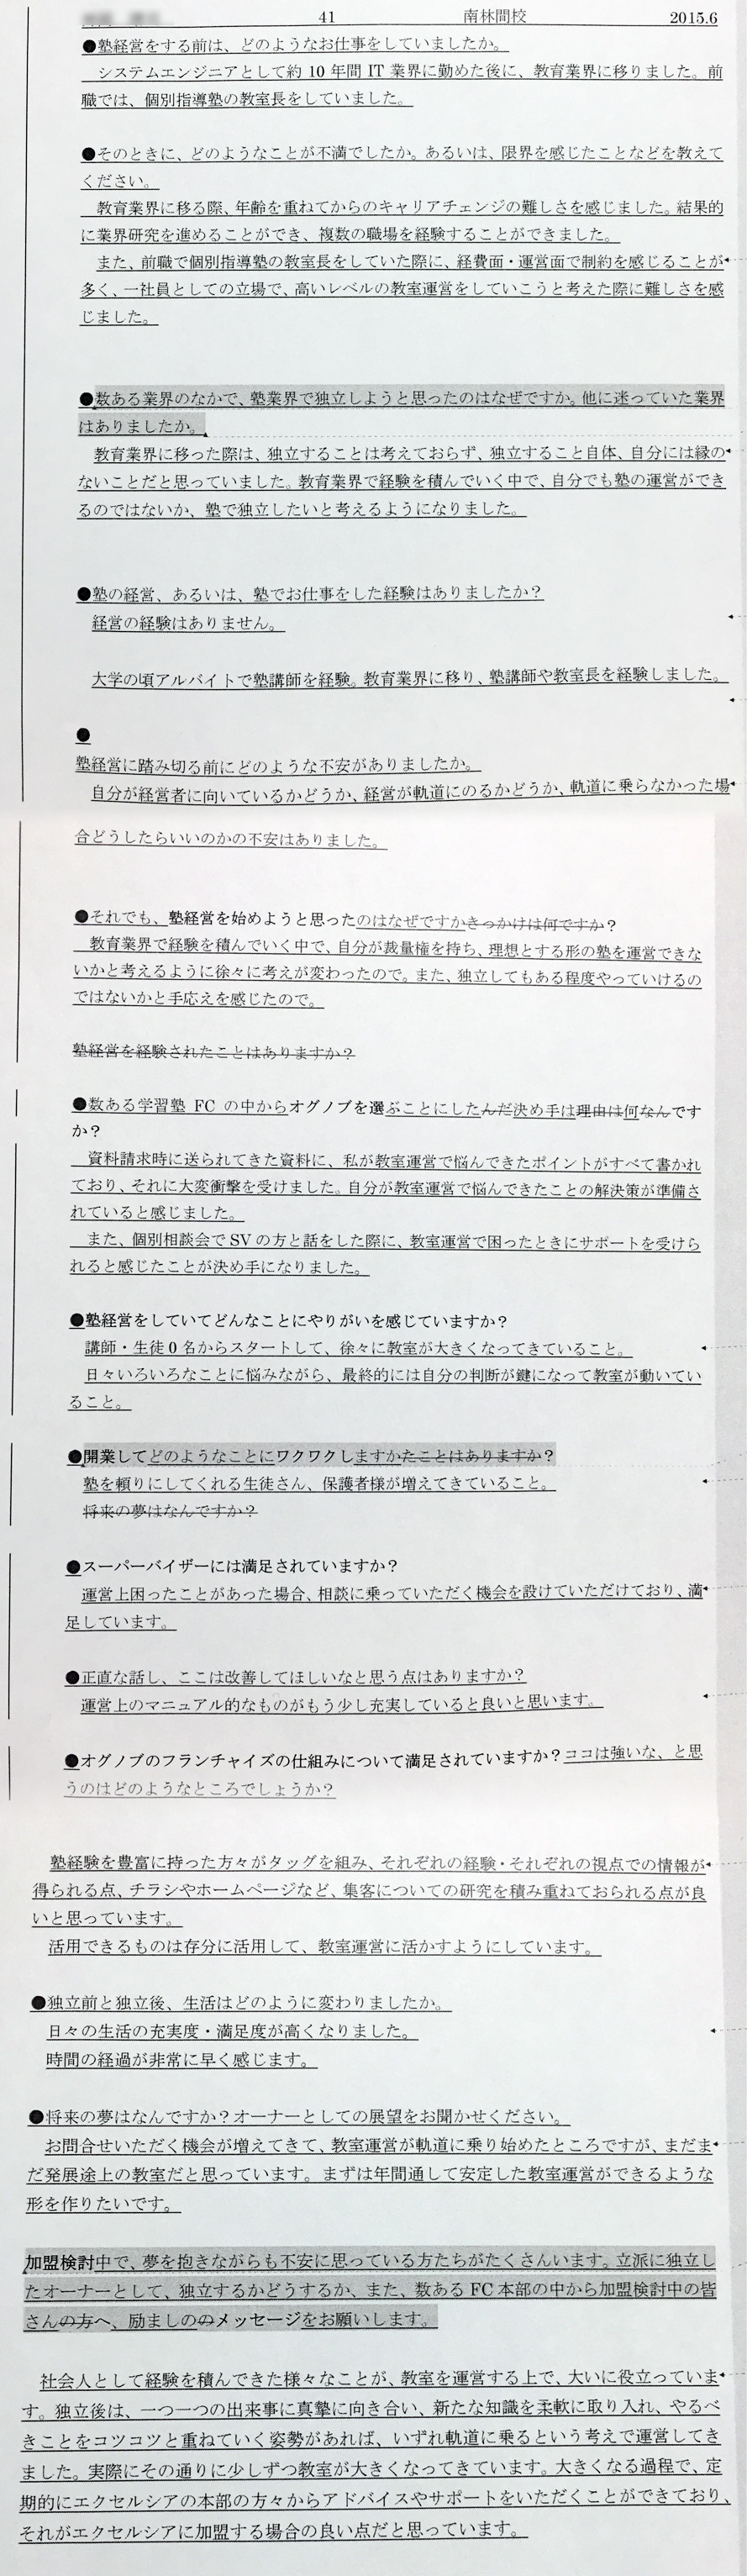 41 南林間校 2015.6
●塾経営をする前は、どのようなお仕事をしていましたか。
システムエンジニアとして約 10 年間 IT 業界に勤めた後に、教育業界に移りました。前
職では、個別指導塾の教室長をしていました。
●そのときに、どのようなことが不満でしたか。あるいは、限界を感じたことなどを教えて
ください。
教育業界に移る際、年齢を重ねてからのキャリアチェンジの難しさを感じました。結果的
に業界研究を進めることができ、複数の職場を経験することができました。
また、前職で個別指導塾の教室長をしていた際に、経費面・運営面で制約を感じることが
多く、一社員としての立場で、高いレベルの教室運営をしていこうと考えた際に難しさを感
じました。
●数ある業界のなかで、塾業界で独立しようと思ったのはなぜですか。他に迷っていた業界
はありましたか。
教育業界に移った際は、独立することは考えておらず、独立すること自体、自分には縁の
ないことだと思っていました。教育業界で経験を積んでいく中で、自分でも塾の運営ができ
るのではないか、塾で独立したいと考えるようになりました。
●塾の経営、あるいは、塾でお仕事をした経験はありましたか？
経営の経験はありません。
大学の頃アルバイトで塾講師を経験。教育業界に移り、塾講師や教室長を経験しました。
●
塾経営に踏み切る前にどのような不安がありましたか。
自分が経営者に向いているかどうか、経営が軌道にのるかどうか、軌道に乗らなかった場
合どうしたらいいのかの不安はありました。
●それでも、塾経営を始めようと思ったのはなぜですかきっかけは何ですか？
教育業界で経験を積んでいく中で、自分が裁量権を持ち、理想とする形の塾を運営できな
いかと考えるように徐々に考えが変わったので。また、独立してもある程度やっていけるの
ではないかと手応えを感じたので。
塾経営を経験されたことはありますか？
●数ある学習塾 FC の中からオグノブを選ぶことにしたんだ決め手は理由は何なんです
か？
資料請求時に送られてきた資料に、私が教室運営で悩んできたポイントがすべて書かれ
ており、それに大変衝撃を受けました。自分が教室運営で悩んできたことの解決策が準備さ
れていると感じました。
また、個別相談会で SV の方と話をした際に、教室運営で困ったときにサポートを受けら
れると感じたことが決め手になりました。
●塾経営をしていてどんなことにやりがいを感じていますか？
講師・生徒 0 名からスタートして、徐々に教室が大きくなってきていること。
日々いろいろなことに悩みながら、最終的には自分の判断が鍵になって教室が動いてい
ること。
●開業してどのようなことにワクワクしますかたことはありますか？
塾を頼りにしてくれる生徒さん、保護者様が増えてきていること。
将来の夢はなんですか？
●スーパーバイザーには満足されていますか？
運営上困ったことがあった場合、相談に乗っていただく機会を設けていただけており、満
足しています。
●正直な話し、ここは改善してほしいなと思う点はありますか？
運営上のマニュアル的なものがもう少し充実していると良いと思います。
●オグノブのフランチャイズの仕組みについて満足されていますか？ココは強いな、と思
うのはどのようなところでしょうか？
塾経験を豊富に持った方々がタッグを組み、それぞれの経験・それぞれの視点での情報が
得られる点、チラシやホームページなど、集客についての研究を積み重ねておられる点が良
いと思っています。
活用できるものは存分に活用して、教室運営に活かすようにしています。
●独立前と独立後、生活はどのように変わりましたか。
日々の生活の充実度・満足度が高くなりました。
時間の経過が非常に早く感じます。
●将来の夢はなんですか？オーナーとしての展望をお聞かせください。
お問合せいただく機会が増えてきて、教室運営が軌道に乗り始めたところですが、まだま
だ発展途上の教室だと思っています。まずは年間通して安定した教室運営ができるような
形を作りたいです。
加盟検討中で、夢を抱きながらも不安に思っている方たちがたくさんいます。立派に独立し
たオーナーとして、独立するかどうするか、また、数ある FC 本部の中から加盟検討中の皆
さんの方へ、励ましののメッセージをお願いします。
社会人として経験を積んできた様々なことが、教室を運営する上で、大いに役立っていま
す。独立後は、一つ一つの出来事に真摯に向き合い、新たな知識を柔軟に取り入れ、やるべ
きことをコツコツと重ねていく姿勢があれば、いずれ軌道に乗るという考えで運営してき
ました。実際にその通りに少しずつ教室が大きくなってきています。大きくなる過程で、定
期的にエクセルシアの本部の方々からアドバイスやサポートをいただくことができており、
それがエクセルシアに加盟する場合の良い点だと思っています。